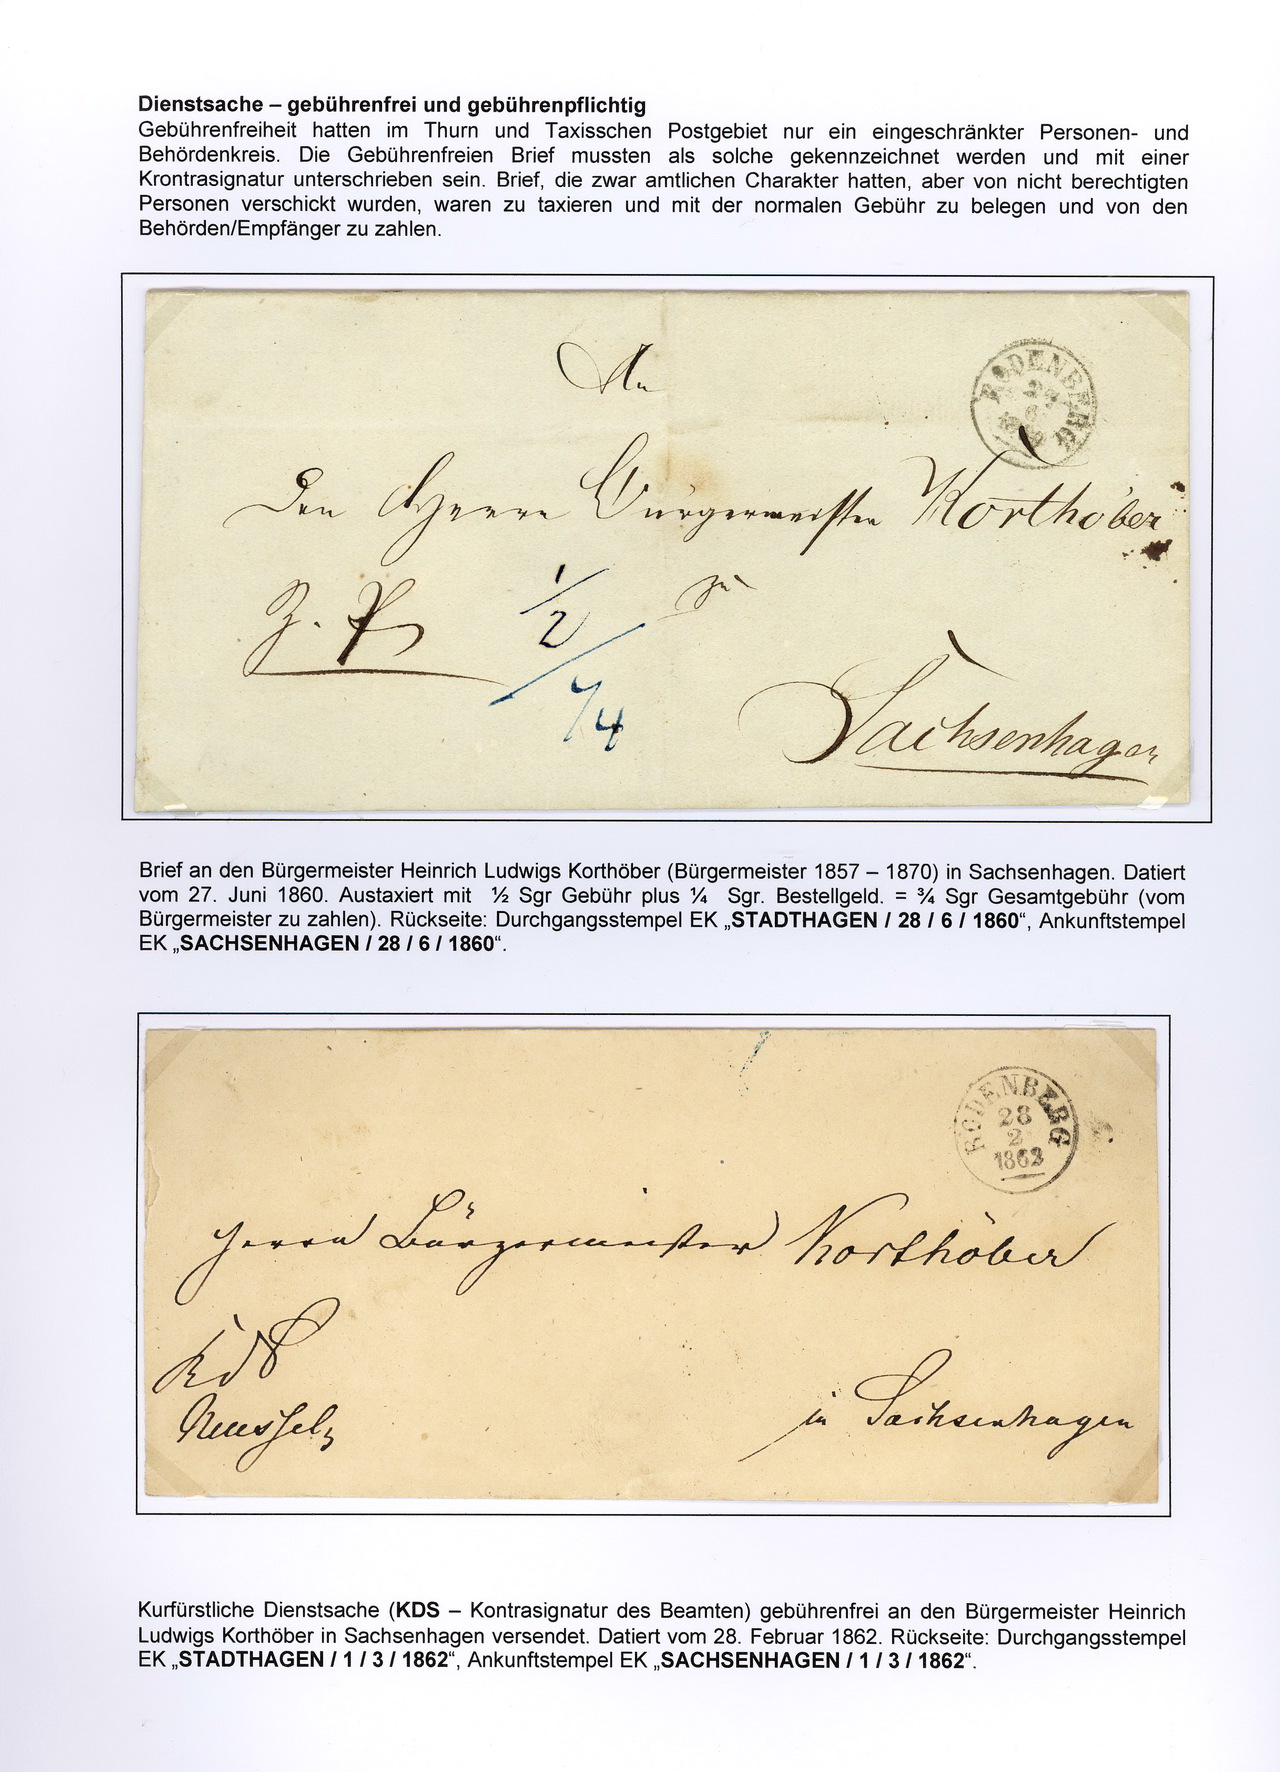 Dienstsache – gebührenfrei und gebührenpflichtig
Gebührenfreiheit hatten im Thurn und Taxisschen Postgebiet nur ein eingeschränkter Personen- und
Behördenkreis. Die Gebührenfreien Brief mussten als solche gekennzeichnet werden und mit einer
Krontrasignatur unterschrieben sein. Brief, die zwar amtlichen Charakter hatten, aber von nicht berechtigten
Personen verschickt wurden, waren zu taxieren und mit der normalen Gebühr zu belegen und von den
Behörden/Empfänger zu zahlen.
An
RODENBERG
Den Herrn Bürgermeister Korthöber
zu
1/2
1/4
Sachsenhagen
Brief an den Bürgermeister Heinrich Ludwigs Korthöber (Bürgermeister 1857 – 1870) in Sachsenhagen. Datiert
vom 27. Juni 1860. Austaxiert mit ½ Sgr Gebühr plus ¼ Sgr. Bestellgeld. = ¾ Sgr Gesamtgebühr (vom
Bürgermeister zu zahlen). Rückseite: Durchgangsstempel EK „STADTHAGEN / 28 / 6 / 1860“, Ankunftstempel
EK „SACHSENHAGEN / 28 / 6 / 1860“.
RODENBERG
28
2
1862
Herrn Bürgermeister Korthöber
KdS
in Sachsenhagen
Kurfürstliche Dienstsache (KDS – Kontrasignatur des Beamten) gebührenfrei an den Bürgermeister Heinrich
Ludwigs Korthöber in Sachsenhagen versendet. Datiert vom 28. Februar 1862. Rückseite: Durchgangsstempel
EK „STADTHAGEN / 1 / 3 / 1862“, Ankunftstempel EK „SACHSENHAGEN / 1 / 3 / 1862“.